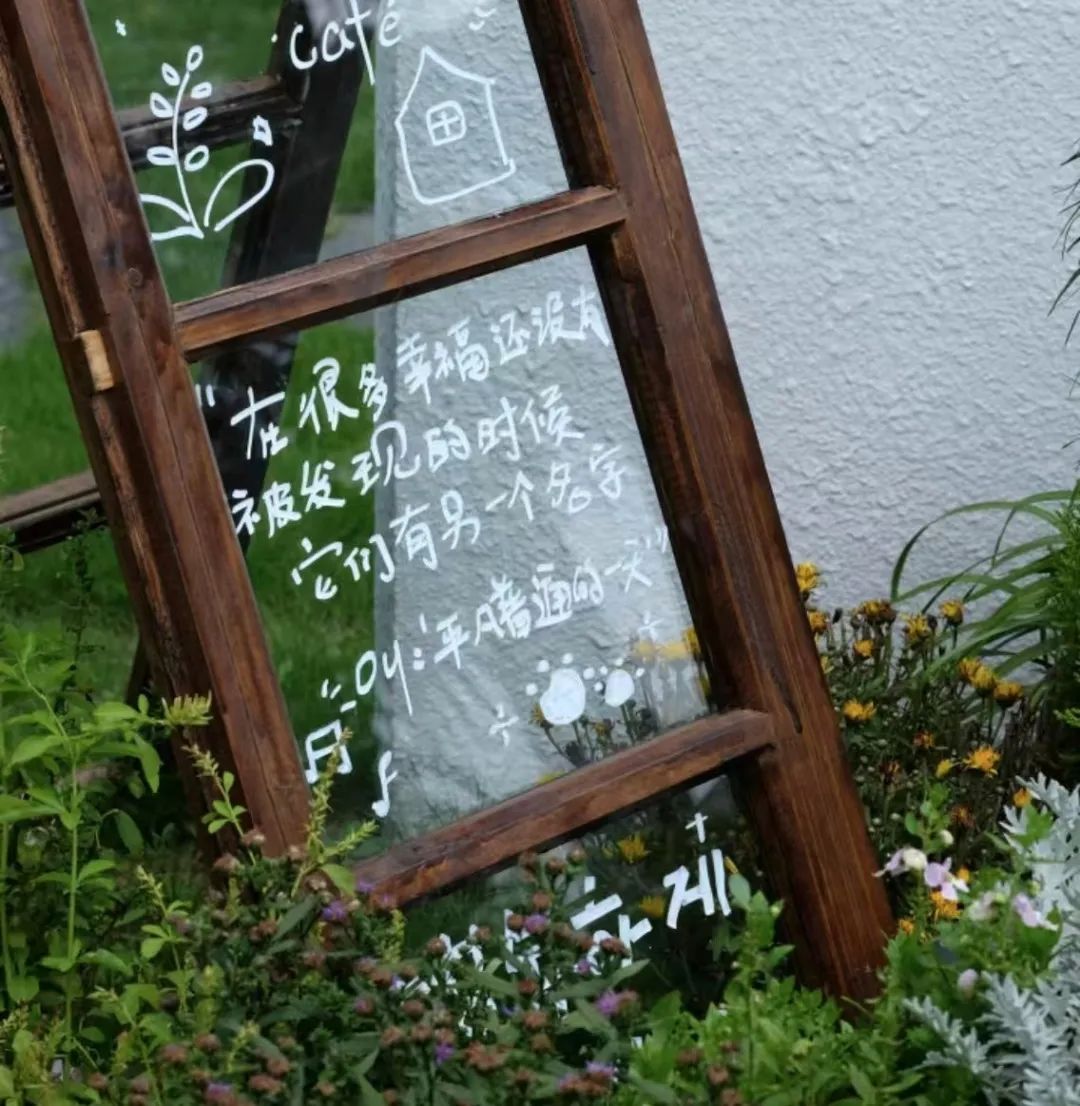 café
"在很多幸福还没有
被发现的时候
它们有另一个名字
叫:平凡普通的一天"
하게